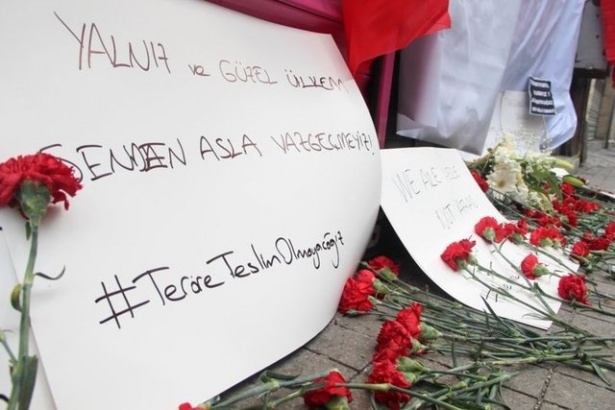 YALNIZ ve GÜZEL ÜLKEM
SENDEN ASLA VAZGEÇMEYİZ!
#TeröreTeslimOlmayacağız
WE ARE HERE
NOT AFRAID